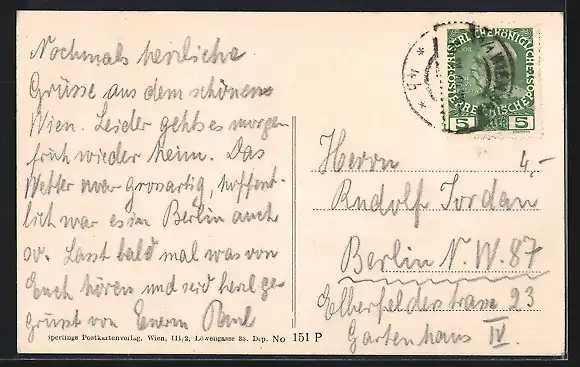 Nochmals herrliche
Grüsse aus dem schönen
Wien. Leider gehts es morgen
früh wieder heim. Das
Wetter war grossartig, hoffent-
lich war es in Berlin auch
so. Lasst bald mal was von
Euch hören und seid herzl ge-
grüsst von Euerm Paul
Sperlings Postkartenverlag, Wien, III/2, Löwengasse 35. Dep. No 151 P
KAISERLICHE KÖNIGLICHE
5 5
WIEN
* 4 b *
4,-
Herrn
Rudolf Jordan
Berlin N. W. 87
Elberfelderstrasse 23
Gartenhaus IV.